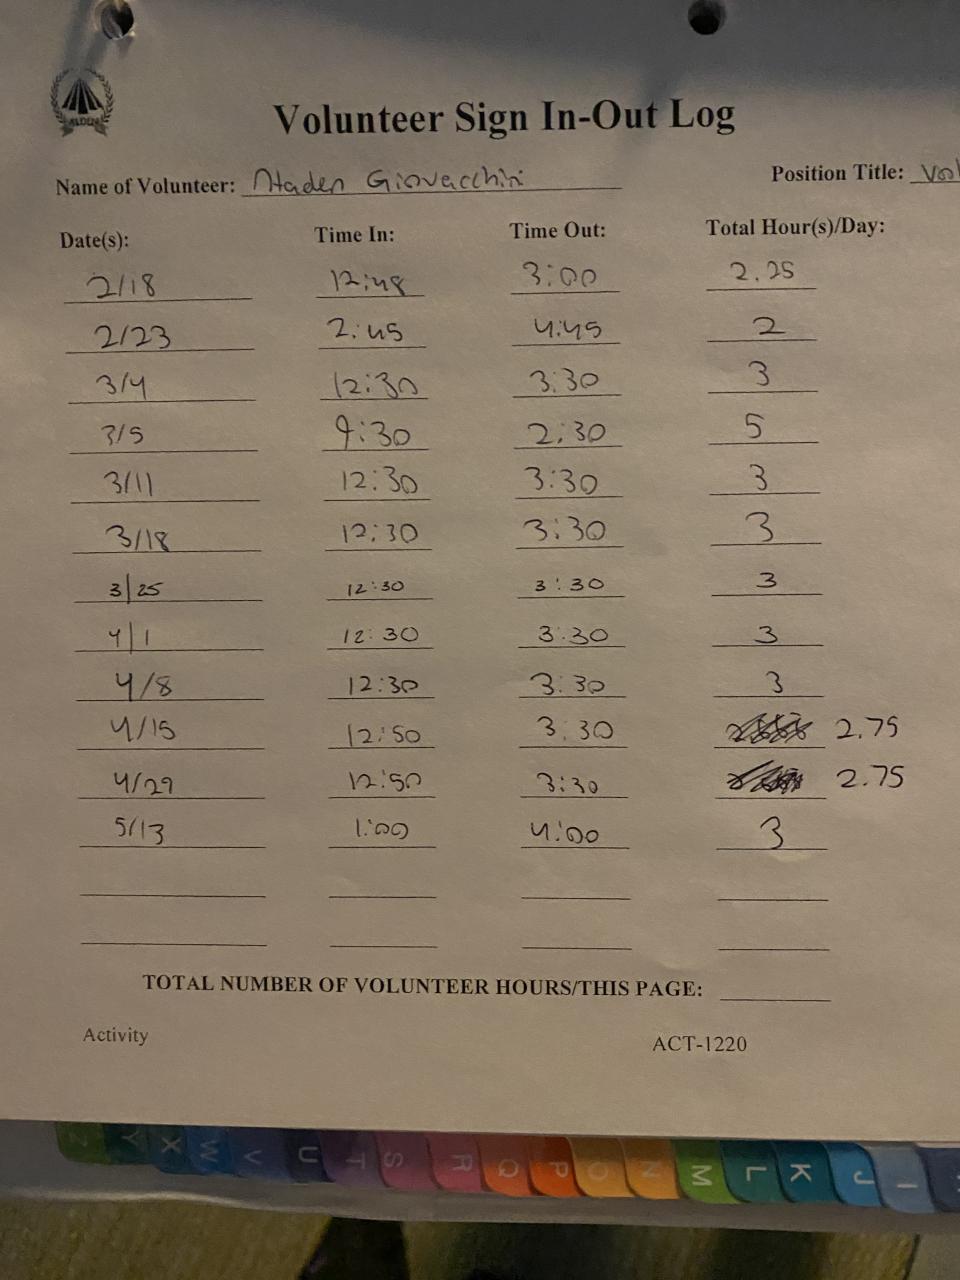 ALDEN
Volunteer Sign In-Out Log
Name of Volunteer: Giovacchini Position Title: Vol
Date(s): Time In: Time Out: Total Hour(s)/Day:
2/18 12:48 3:00 2.25
2/23 2:45 4:45 2
3/4 12:30 3:30 3
3/5 9:30 2:30 5
3/11 12:30 3:30 3
3/18 12:30 3:30 3
3/25 12:30 3:30 3
4/1 12:30 3:30 3
4/8 12:30 3:30 3
4/15 12:50 3:30 2.75
4/29 12:50 3:30 2.75
5/13 1:00 4:00 3
TOTAL NUMBER OF VOLUNTEER HOURS/THIS PAGE:
Activity ACT-1220
Z Y X W V U T S R Q P O N M L K J I